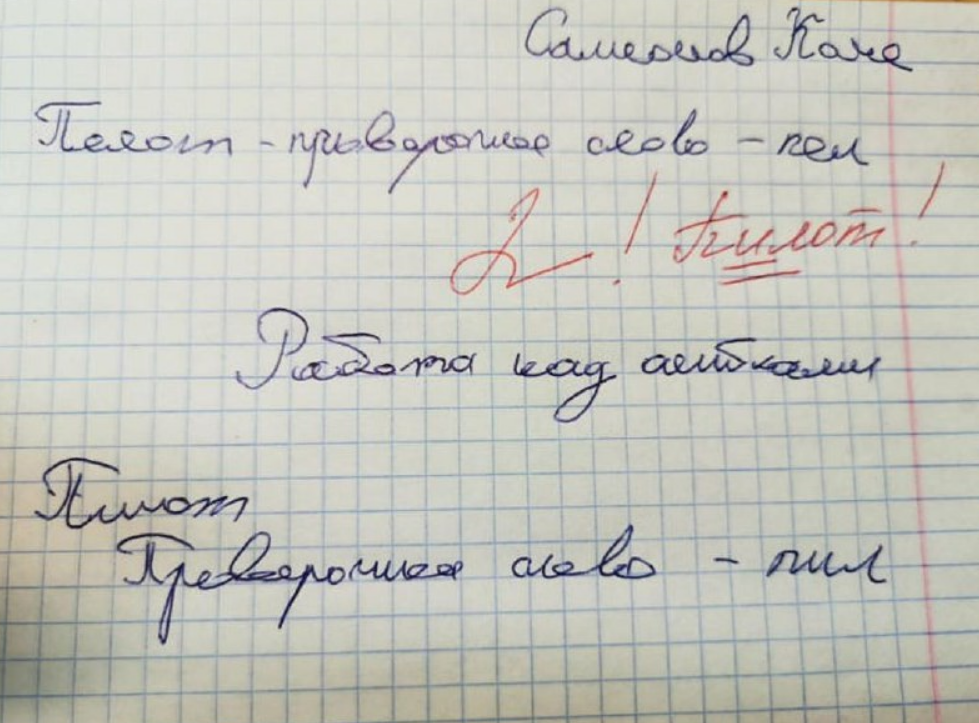 Самсонов Коле
Пелот - приверочное слово - пел
2! Пилот!
Работа над ашибками
Пилот
Преверочное слово - пил